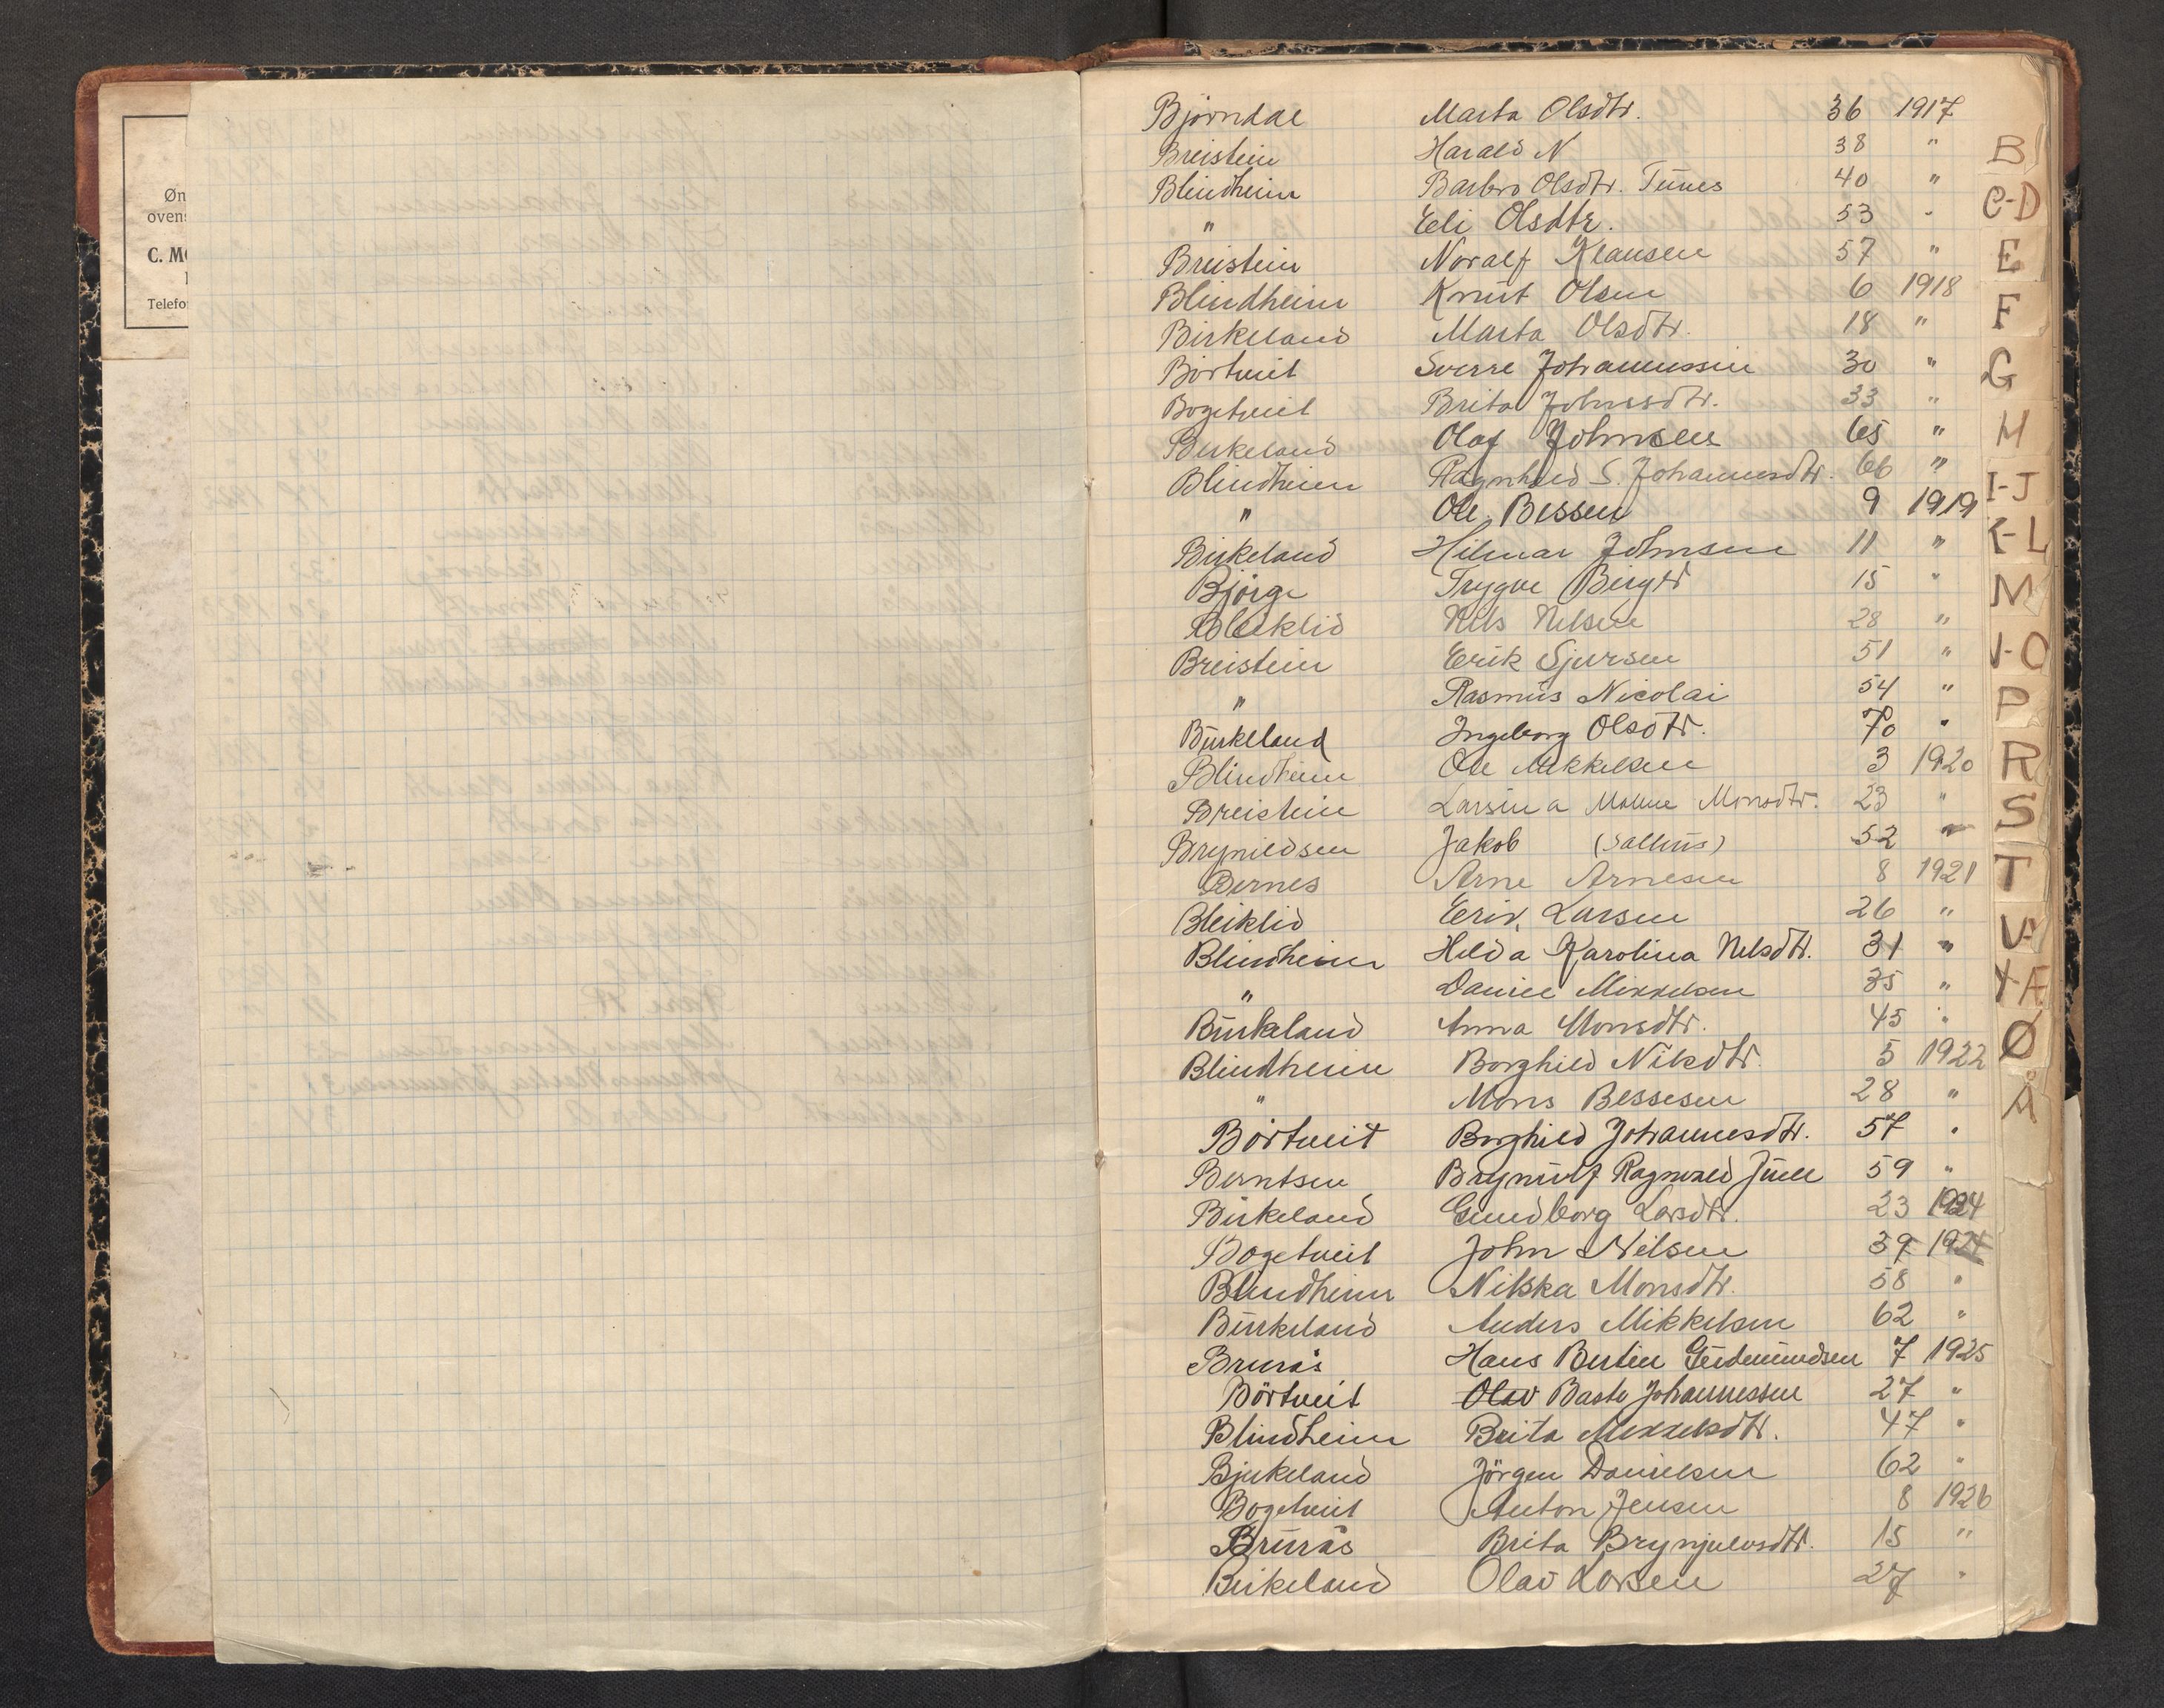 Øn
oven
C. M
Telefo
Björndal Marta Olsdtr. 36 1917
Breistein Harald N 38 "
Blindheim Barbro Olsdtr. Tunes 40 "
" Eli Olsdtr. 53 "
Breistein Noralf Klausen 57 "
Blindheim Knut Olsen 6 1918
Birkeland Marta Olsdtr. 18 "
Börtveit Sverre Johannessen 30 "
Bogetveit Brita Johnsdtr. 33 "
Birkeland Olaf Johnsen 65 "
Blindheim Ragnhild S. Johannesdtr. 66 "
" Ole Bessen 9 1919
Birkeland Hilmar Johnsen 11 "
Björge Trygve Birger 15 "
Bleiklid Nils Nelsen 28 "
Breistein Erik Sjursen 51 "
" Rasmus Nicolai 54 "
Birkeland Ingeborg Olsdtr. 70 "
Blindheim Ole Mikkelsen 3 1920
Breistein Larsina Moline Monsdtr. 23 "
Brynildsen Jakob (Salhus) 52 "
Bernes Arne Arnesen 8 1921
Bleiklid Erik Larsen 26 "
Blindheim Hilda Karolina Nelsdtr. 31 "
" Daniel Mikkelsen 35 "
Birkeland Anna Monsdtr. 45 "
Blindheim Borghild Nilsdtr. 5 1922
" Mons Bessesen 28 "
Börtveit Borghild Johannesdtr. 57 "
Berntsen Brynulf Ragnvald Juell 59 "
Birkeland Gundborg Larsdtr. 23 1924
Bogetveit John Nilsen 39 1924
Blindheim Nilska Monsdtr. 58 "
Birkeland Anders Mikkelsen 62 "
Brurås Hans Bertin Gudmundsen 7 1925
Börtveit Olav Basto Johannessen 27 "
Blindheim Brita Mikkelsdtr. 47 "
Bjirkeland Jörgen Danielsen 62 "
Bogetveit Anton Jensen 8 1926
Brurås Brita Brynjulvsdtr. 15 "
Birkeland Olav Larsen 27 "
B
C-D
E
F
G
H
I-J
K-L
M
N-O
P
R
S
T
U-
Y-Æ
Ø
Å